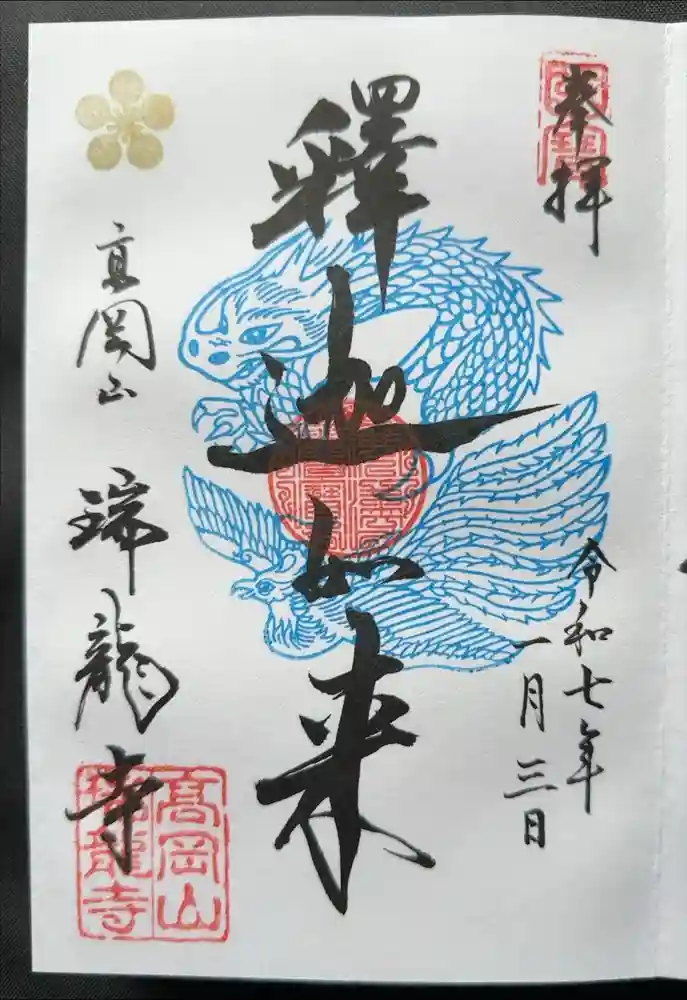 奉拝
国寳
令和七年
一月三日
釋迦如来
高岡山
瑞龍寺
高岡山
瑞龍寺